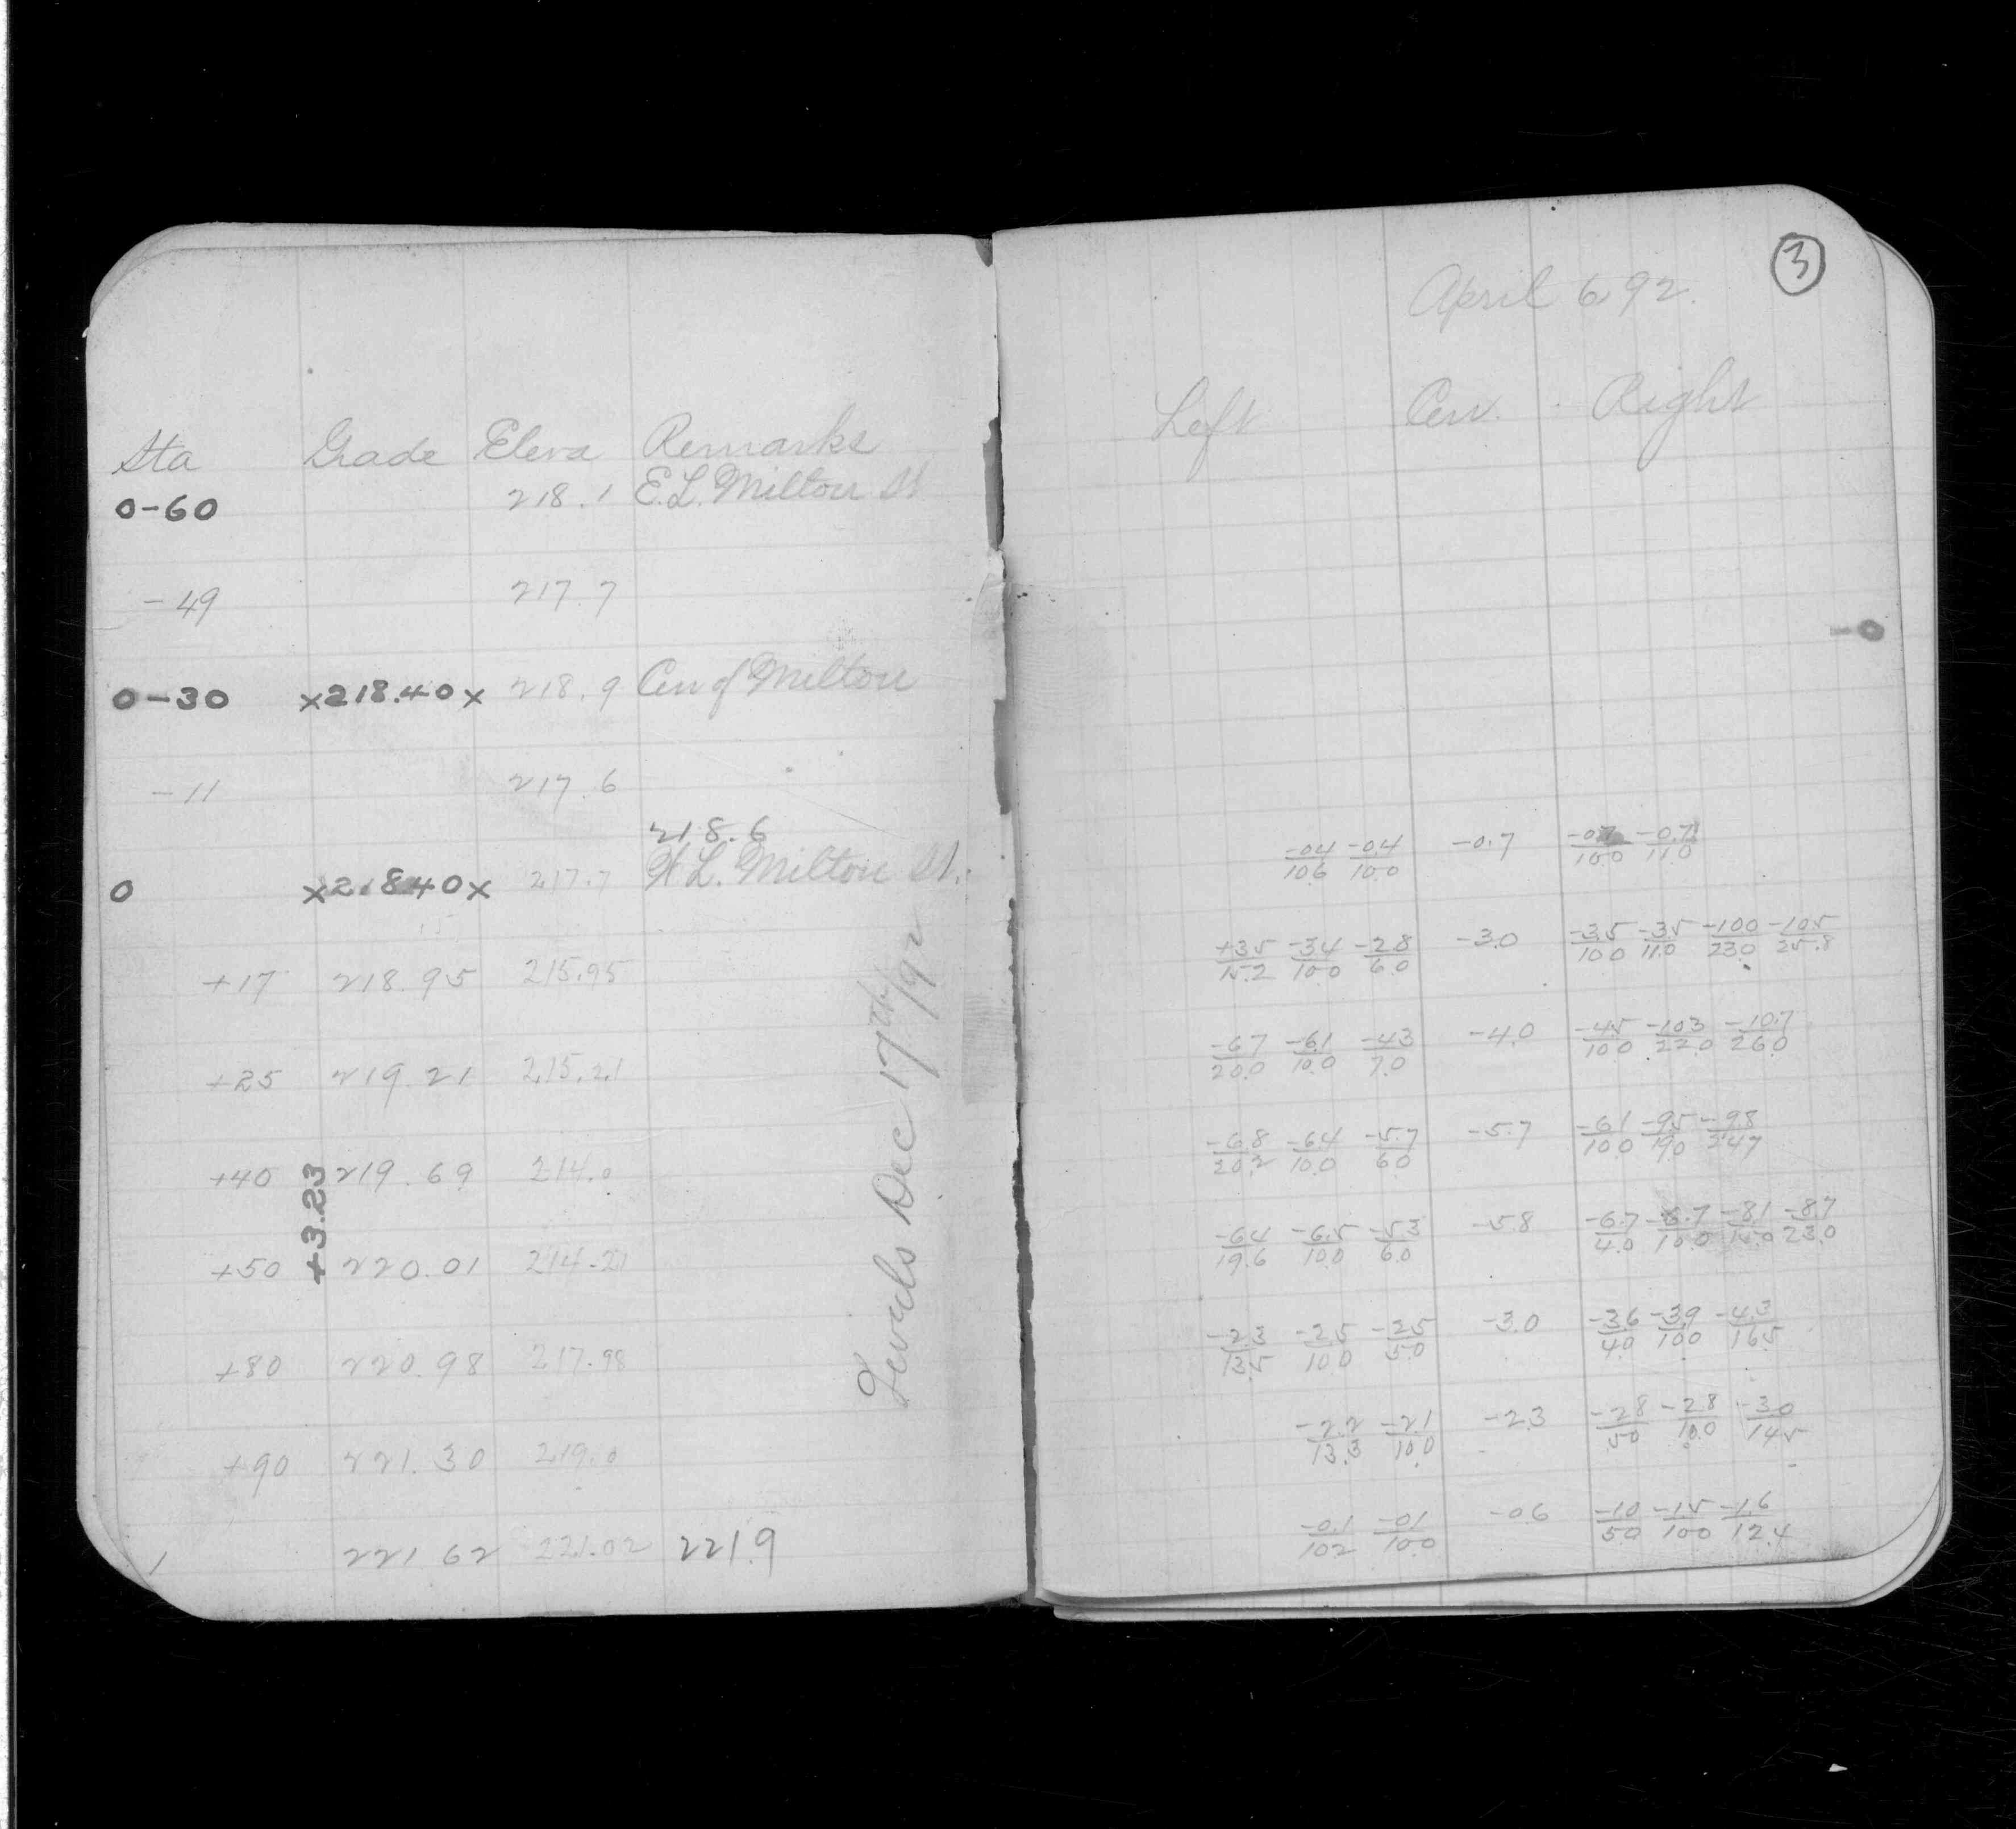 Sta Grade Eleva Remarks
0-60 218.1 E.L. Milton St
-49 217.7
0-30 x218.40x 218.9 Cen of Milton
-11 217.6
218.6
0 x218.40x 217.7 W L. Milton St.
+17 218.95 215.95
+25 219.21 215.21
+40 219.69 214.0
+50 220.01 214.21
+80 220.98 217.98
+90 221.30 219.0
1 221.62 221.02 221.9
+3.23
Levels Dec 17th/92
3
April 6, 92.
Left Cen. Right
-0
-0.4/10.6 -0.4/10.0 -0.7 -0.7/10.0 -0.7/11.0
+3.5/15.2 -3.4/10.0 -2.8/6.0 -3.0 -3.5/10.0 -3.5/11.0 -10.0/23.0 -10.5/25.8
-6.7/20.0 -6.1/10.0 -4.3/7.0 -4.0 -4.5/10.0 -10.3/22.0 -10.7/26.0
-6.8/20.2 -6.4/10.0 -5.7/6.0 -5.7 -6.1/10.0 -9.5/19.0 -9.8/24.7
-6.4/19.6 -6.5/10.0 -5.3/6.0 -5.8 -6.7/4.0 -6.7/10.0 -8.1/15.0 -8.7/23.0
-2.3/13.5 -2.5/10.0 -2.5/5.0 -3.0 -3.6/4.0 -3.9/10.0 -4.3/16.5
-2.2/13.3 -2.1/10.0 -2.3 -2.8/5.0 -2.8/10.0 -3.0/14.5
-0.1/10.2 -0.1/10.0 -0.6 -1.0/5.0 -1.5/10.0 -1.6/12.4